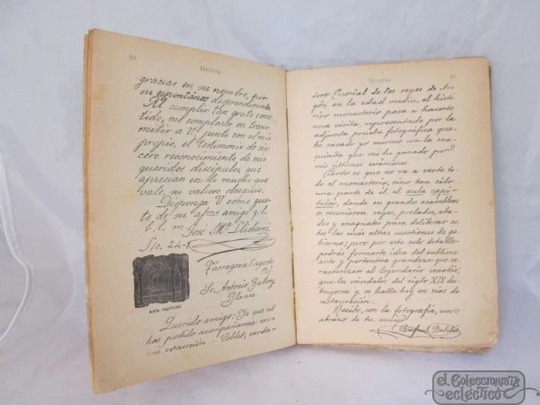 30
MENTOR
gracias en su nombre, por
su espontáneo desprendimiento.
Al cumplir tan grato come-
tido, me complazco en trans-
mitir a V. junto con el mío
propio, el testimonio de sin-
cero reconocimiento de mis
queridos discípulos, que
aprecian en lo mucho que
vale, su valioso obsequio.
Disponga V. como gus-
te de su afmo. amigo q. l.
b. l. m. José Mª
S/c. 24-8
Tarragona 5 agosto
Sr. Antonio
Aula capitular
Querido amigo: Ya que no
has podido acompañarme en la
excursión a Poblet, verda-
MENTOR
31
dero Escorial de los reyes de Ara-
gón en la edad media, el histó-
rico monasterio pasa a hacerte
una visita, representado por la
adjunta prueba fotográfica que
he sacado yo mismo con la má-
quinita que me he ganado por
mis últimos exámenes.
Cierto es que no va a verte to-
do el monasterio, sino tan sólo
una parte de él: el aula capi-
tular, donde en grandes asambleas
se reunieron reyes, prelados, aba-
des y magnates para deliberar so-
bre las más altas cuestiones de go-
bierno; pero por este solo detalle
podrás formarte idea del sublime
arte y portentosa grandeza que ca-
racterizan al legendario cenobio,
que los vándalos del siglo XIX des-
truyeron y se halla hoy en vías de
restauración.
Recibe, con la fotografía, un
abrazo de tu amigo
el Coleccionista
ecléctico